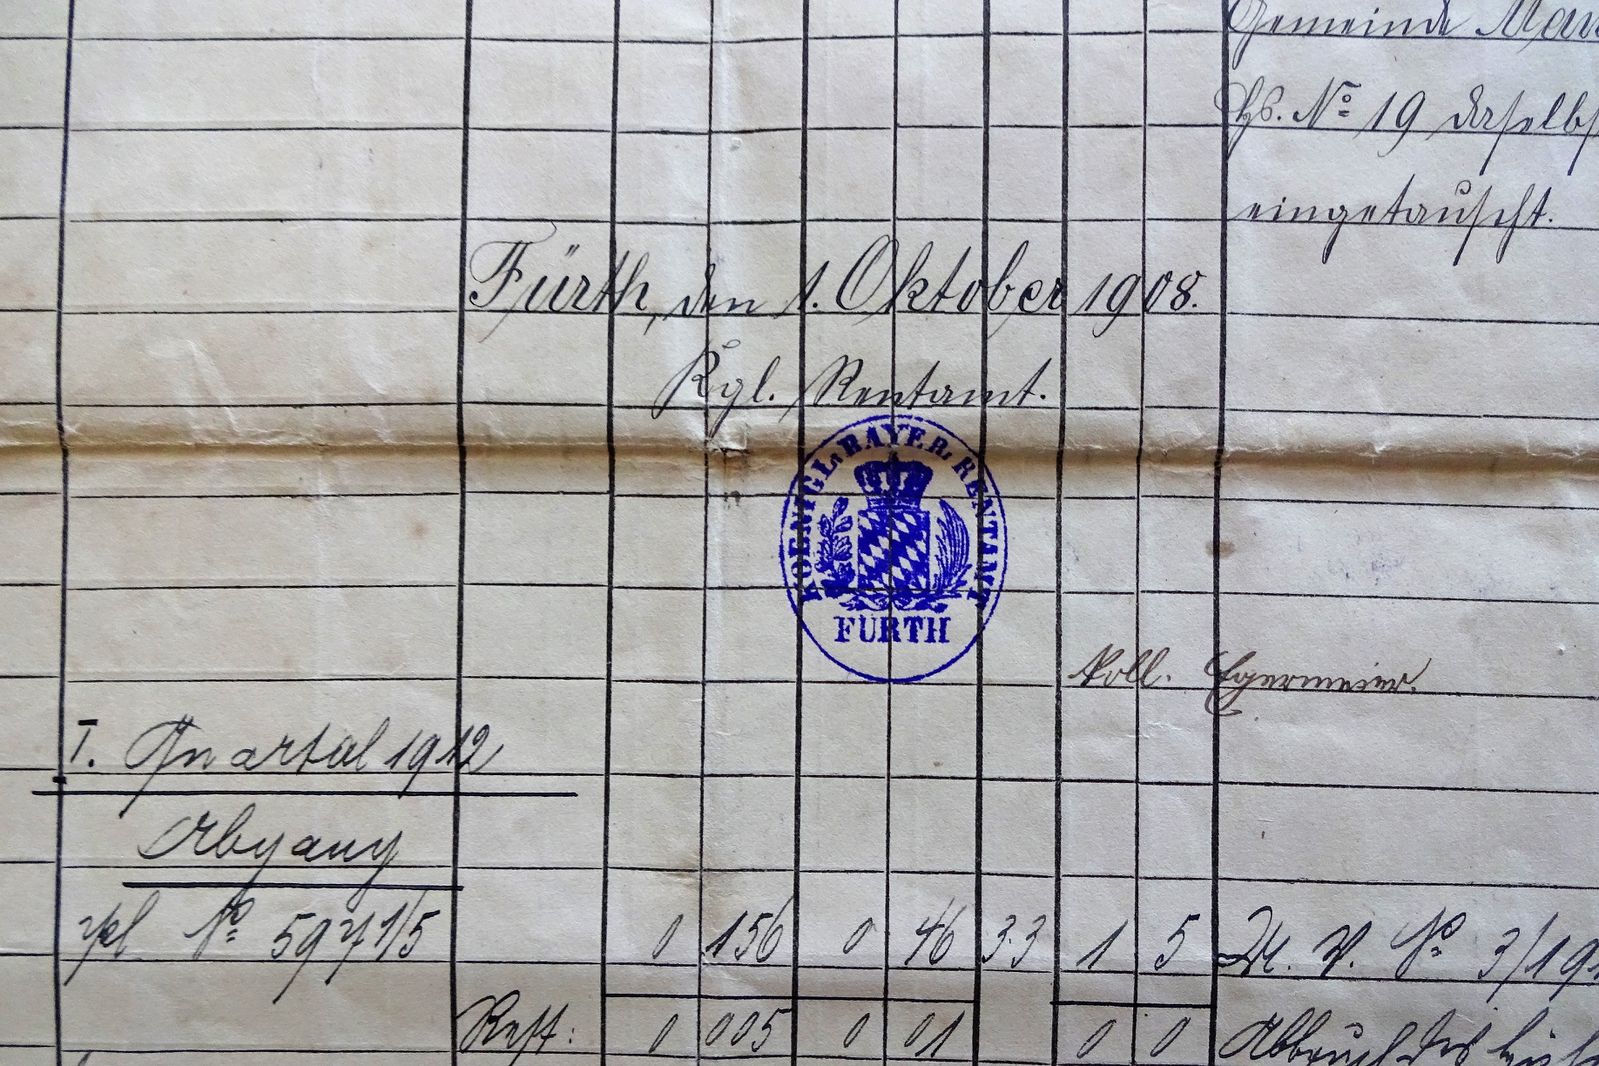 Gemeinde
Hs. No 19 daselbst
eingetauscht.
Fürth, den 1. Oktober 1908.
Kgl. Rentamt.
KOENIGL. BAYER. RENTAMT
FÜRTH
Egermeier.
I. Quartal 1912
Abgang
Pl No 0 156 0 46 33 1 5 No 3/191
Rest: 0 005 0 01 0 0 Abbruch des